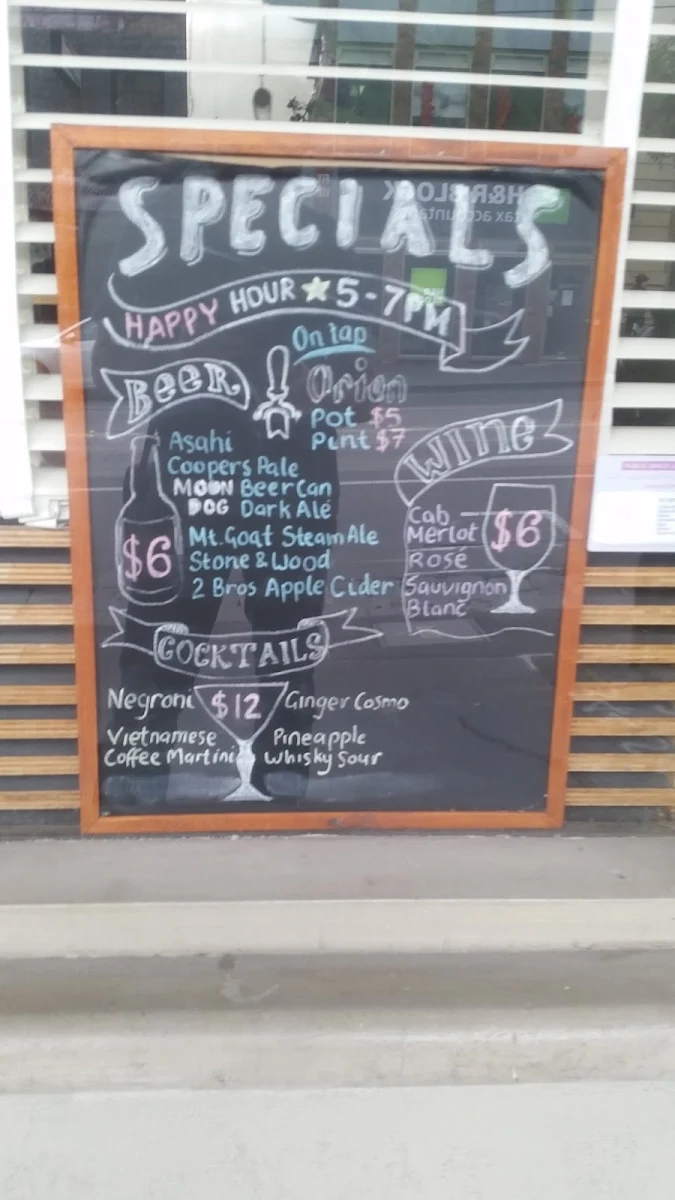 SPECIALS
HAPPY HOUR ★ 5-7PM
On tap
BEER
Orion
Pot $5
Pint $7
Asahi
Coopers Pale
MOON Beer Can
DOG Dark Ale
Mt. Goat Steam Ale
Stone & Wood
2 Bros Apple Cider
$6
WINE
Cab
Merlot
Rosé
Sauvignon
Blanc
$6
COCKTAILS
Negroni $12 Ginger Cosmo
Vietnamese Pineapple
Coffee Martini Whisky Sour
H&R BLOCK
tax accountants